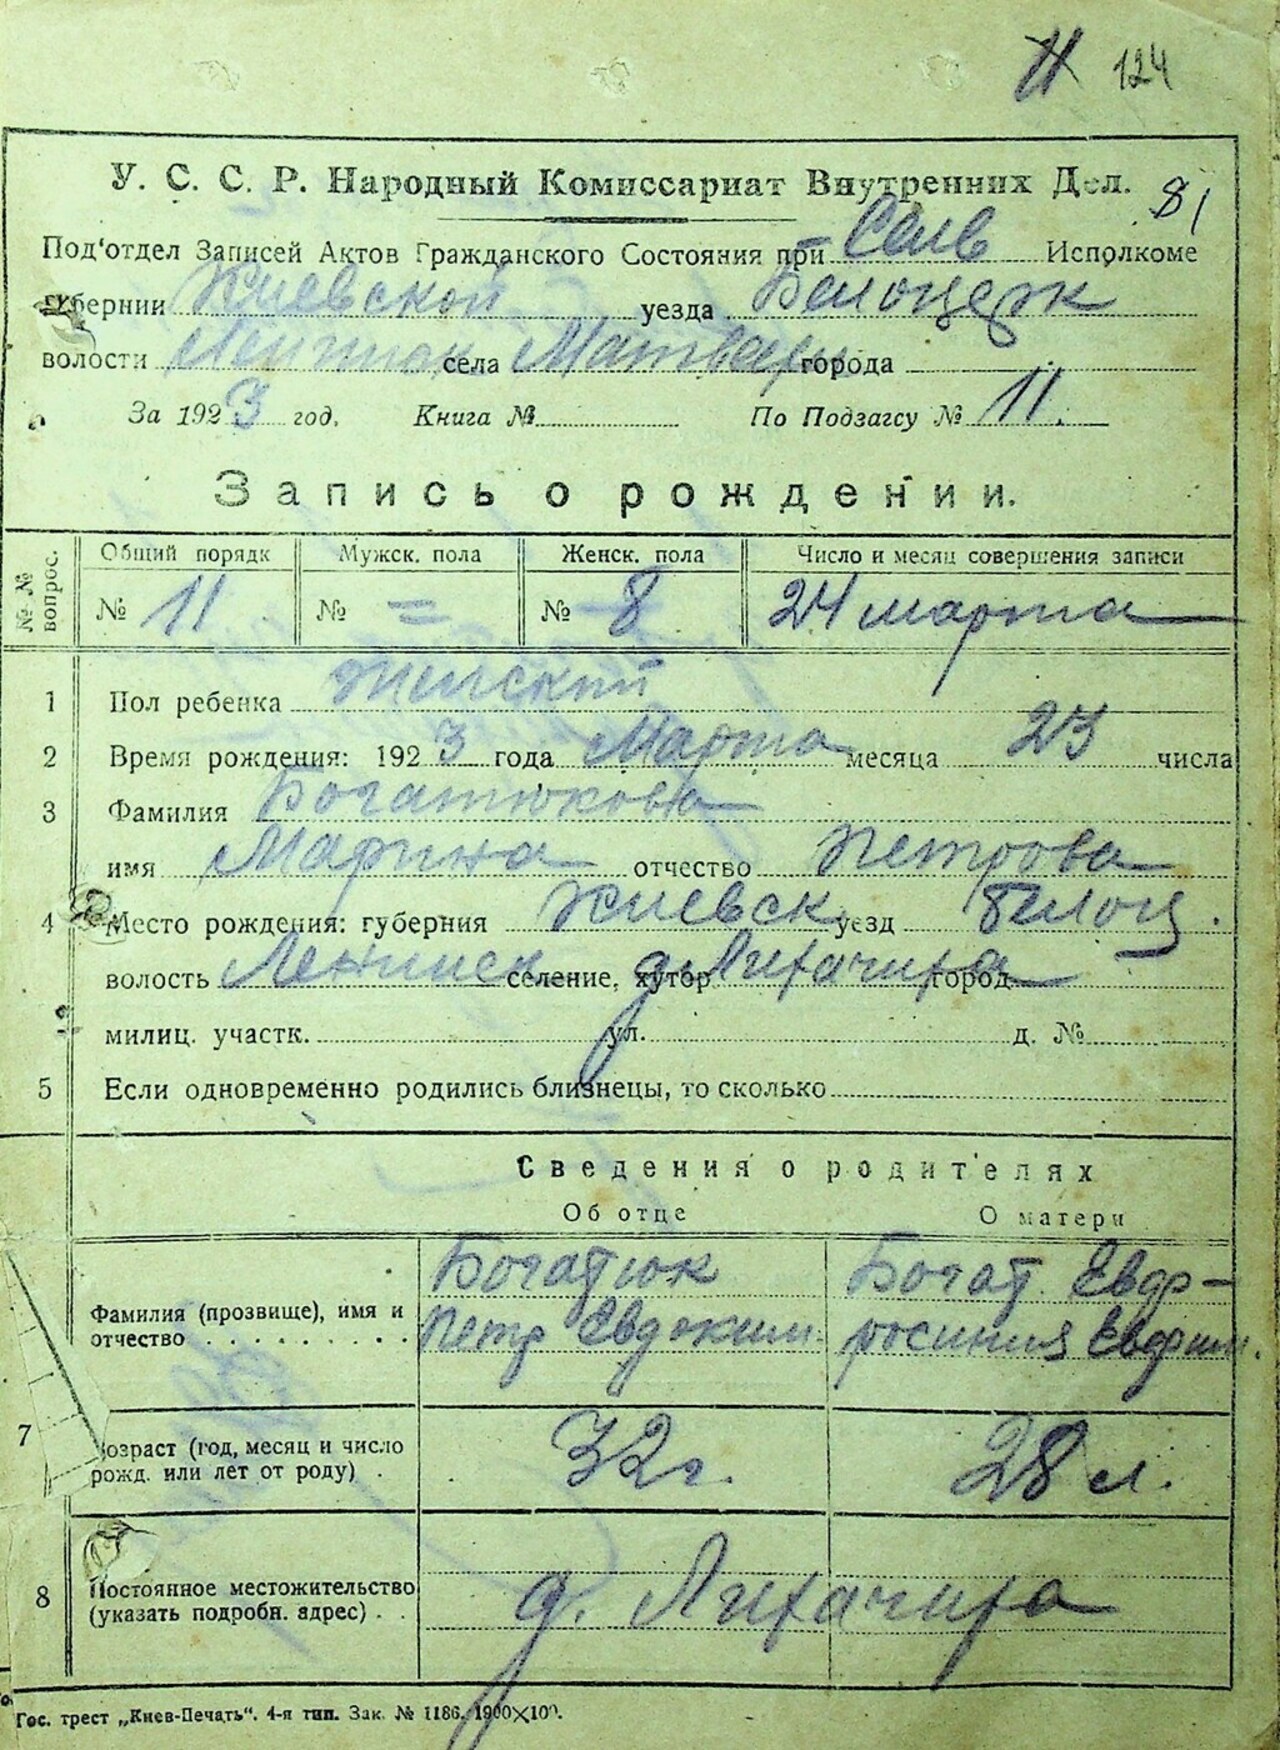 11 124
У. С. С. Р. Народный Комиссариат Внутренних Дел.
81
Под'отдел Записей Актов Гражданского Состояния при Сельв Исполкоме
губернии Киевской уезда Белоцерк
волости села города
За 1923 год. Книга № По Подзагсу № 11.
Запись о рождении.
№№ вопрос. Общий порядк Мужск. пола Женск. пола Число и месяц совершения записи
№ 11 № = № 8 24 марта
1 Пол ребенка Женский
2 Время рождения: 1923 года Марта месяца 23 числа
3 Фамилия Богатюкова
имя Марина отчество Петрова
4 Место рождения: губерния Киевск уезд Белоц.
волость Ленинск селение, хутор д. город
милиц. участк. ул. д. №
5 Если одновременно родились близнецы, то сколько
Сведения о родителях
Об отце О матери
Богатюк Богат. Евф-
Фамилия (прозвище), имя и отчество Петр Евдоким. росиния Евфим.
7 Возраст (год, месяц и число рожд. или лет от роду) 32 г. 28 л.
8 Постоянное местожительство (указать подробн. адрес) д.
Гос. трест „Киев-Печать“. 4-я тип. Зак. № 1186. 1900×100.